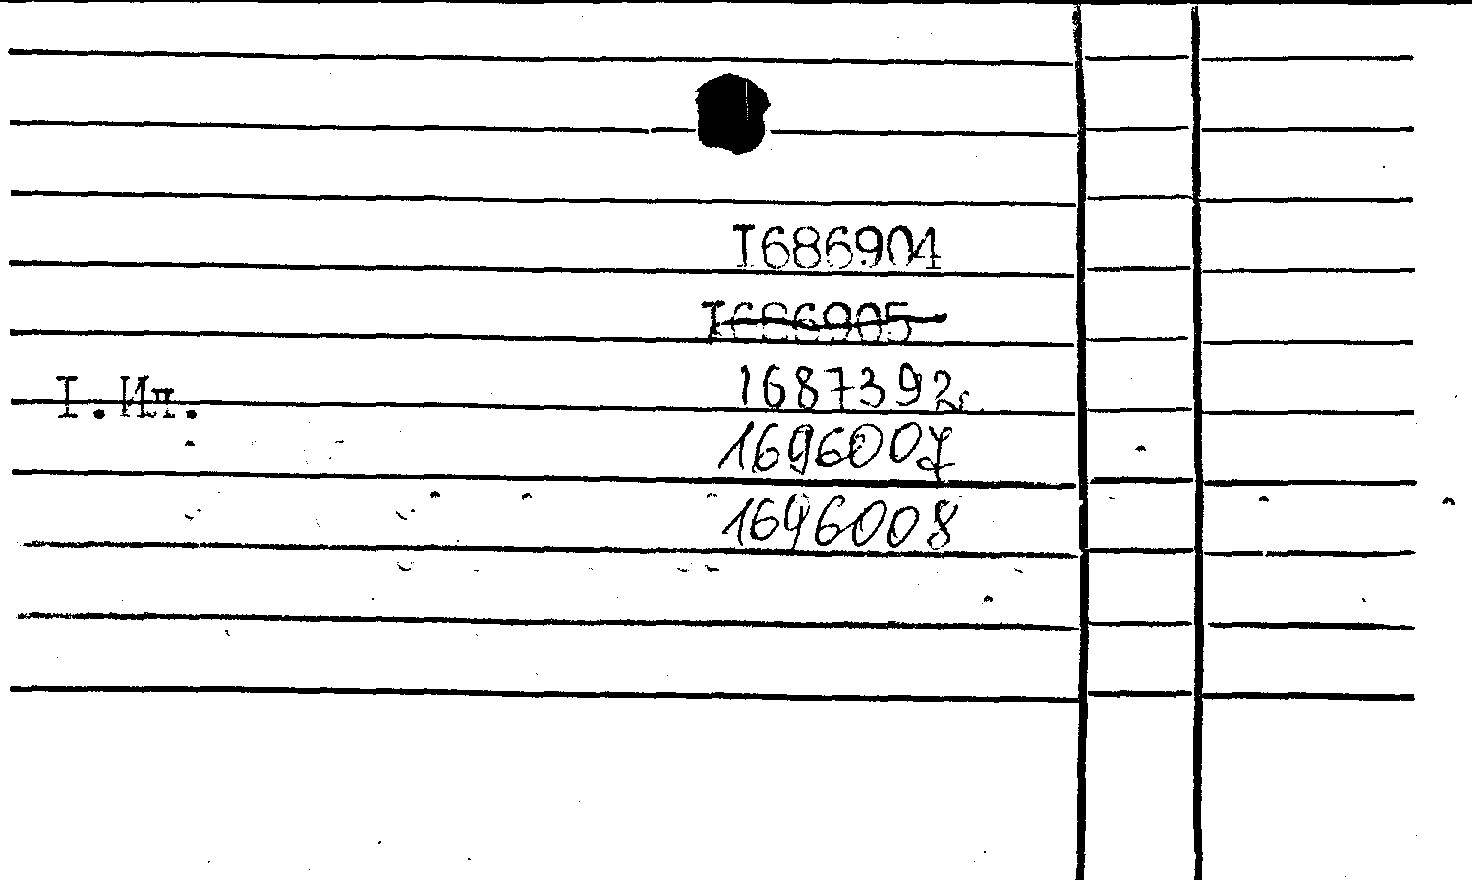 I686904
I686905
I. Ил. 1687392г.
1696007
1696008